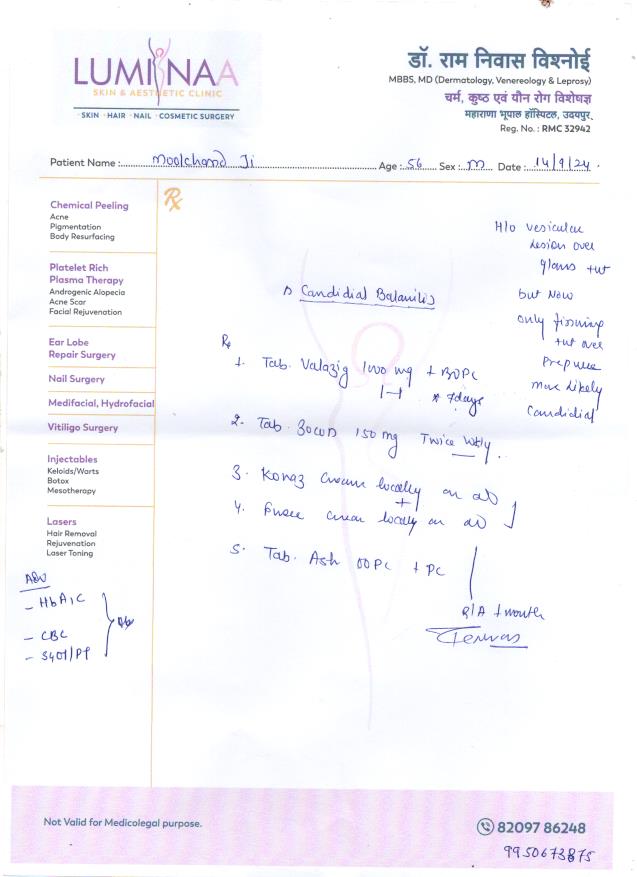 LUMINAA
SKIN & AESTHETIC CLINIC
· SKIN · HAIR · NAIL · COSMETIC SURGERY
डॉ. राम निवास विश्नोई
MBBS, MD (Dermatology, Venereology & Leprosy)
चर्म, कुष्ठ एवं यौन रोग विशेषज्ञ
महाराणा भूपाल हॉस्पिटल, उदयपुर.
Reg. No. : RMC 32942
Patient Name : Moolchand Ji Age : 56 Sex : M Date : 14/9/24.
Rx
Chemical Peeling
Acne
Pigmentation
Body Resurfacing
Platelet Rich
Plasma Therapy
Androgenic Alopecia
Acne Scar
Facial Rejuvenation
Ear Lobe
Repair Surgery
Nail Surgery
Medifacial, Hydrofacial
Vitiligo Surgery
Injectables
Keloids/Warts
Botox
Mesotherapy
Lasers
Hair Removal
Rejuvenation
Laser Toning
Adv
- HbA1C
- CBC
- SGOT/PT
H/o vesicular
lesion over
glans
but Now
only
over
Prepuce
More likely
Candidial
Candidial Balanitis
Rx
1. Tab. Valazig 1000 mg
1-1 × 7days
2. Tab. Zocon 150 mg Twice Wkly.
3. Konaz cream locally
+
4. cream locally
5. Tab. Ash
Not Valid for Medicolegal purpose.
82097 86248
9950673875